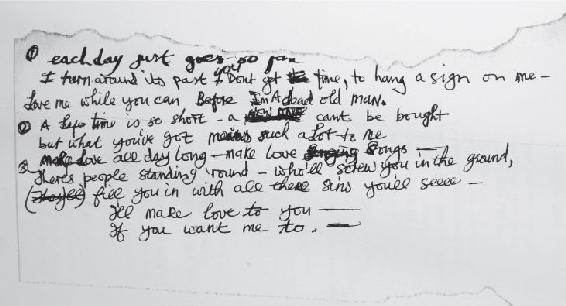 ① each day just goes so fast
I turn around its past you Dont get time, to hang a sign on me —
Love me while you can Before Im A dead old man.
② A life time is so short — a new one cant be bought
but what you've got means such a lot to me
③ Make Love all day long — make love singing songs —
Theres people standing 'round — who'll screw you in the ground,
(They'll) fill you in with all there sins you'll see —
I'll make love to you —
If you want me to. —